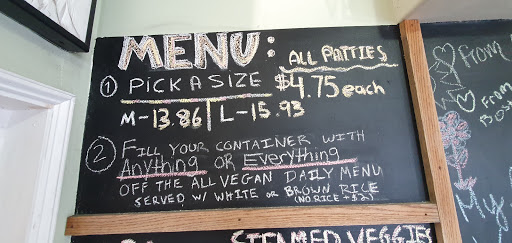 MENU:
ALL PATTIES
$4.75 each
① PICK A SIZE
M-13.86 | L-15.93
② FILL YOUR CONTAINER WITH
Anything OR Everything
OFF THE ALL VEGAN DAILY MENU
SERVED W/ WHITE OR BROWN RICE
(NO RICE +$2)
STEAMED VEGGIES
From
From
My